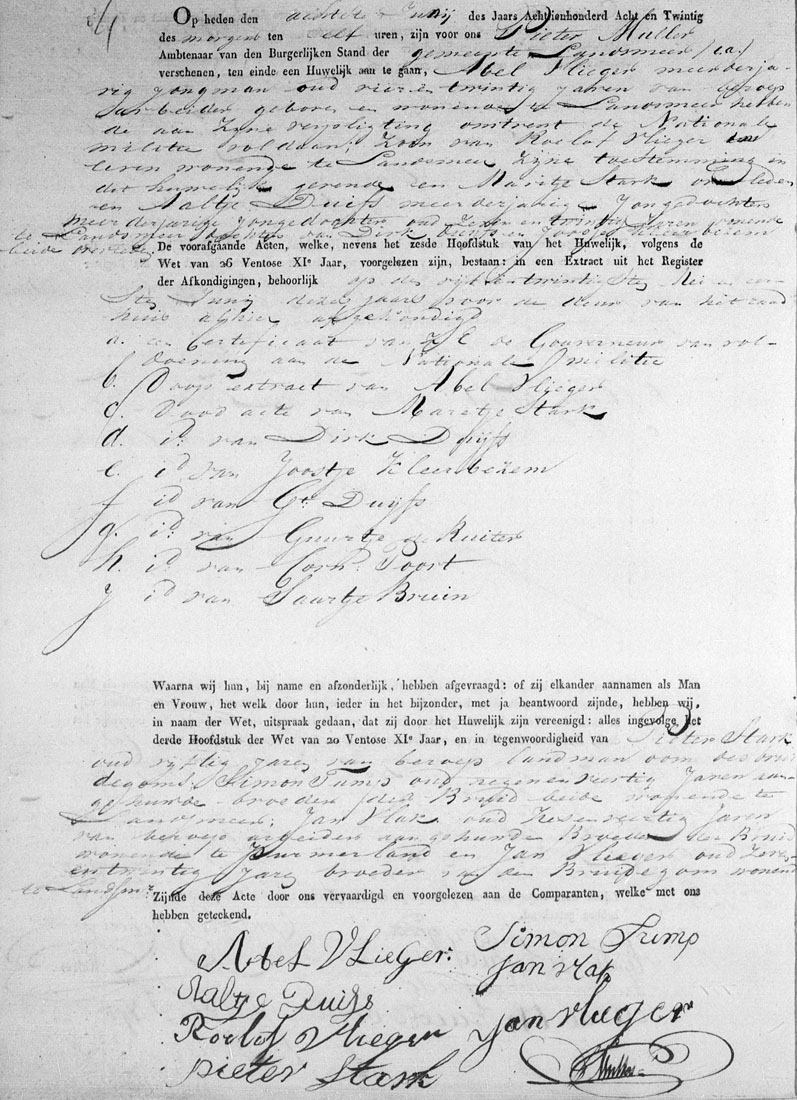 Op heden den achtste Junij des Jaars Achttienhonderd Acht en Twintig
des morgens ten elf uren, zijn voor ons Pieter Muller
Ambtenaar van den Burgerlijken Stand der gemeente Landsmeer
verschenen, ten einde een Huwelijk aan te gaan, Abel Vlieger meerderja-
rig jongman oud vier en twintig jaren van beroep
Arbeider geboren en wonende te Landsmeer hebben
de aan zyne verpligting omtrent de Nationale
militie voldaan, Zoon van Roelof Vlieger
wonende te Landsmeer zyne toestemming in
dit huwelijk gevende en Maritje Stark overleden
en Aaltje Duijfs meerderjarige Jongedochter
meerderjarige jongedochter oud Zeven en twintig Jaren wonende
te Landsmeer dochter van Dirk Duijfs en Joostje Kleerbezem
beide overleden
De voorafgaande Acten, welke, nevens het zesde Hoofdstuk van het Huwelijk, volgens de
Wet van 26 Ventose XIe Jaar, voorgelezen zijn, bestaan: in een Extract uit het Register
der Afkondigingen, behoorlijk op den vijf en twintigsten Mei en een
sten Junij dezes jaars voor de deur van het raad
huis alhier afgekondigd
a. een Certificaat van Z E de Gouverneur van vol-
doening aan de Nationale Militie
b. Doop extract van Abel Vlieger
c. Dood acte van Maretje Stark
d. id. van Dirk Duijfs
e. id van Joostje Kleerbezem
f id van Gt. Duijfs
g. id. van Guurtje de Ruiter
h. id. van Corns. Poort
j id. van Saartje Bruin
Waarna wij hun, bij name en afzonderlijk, hebben afgevraagd: of zij elkander aannamen als Man
en Vrouw, het welk door hun, ieder in het bijzonder, met ja beantwoord zijnde, hebben wij,
in naam der Wet, uitspraak gedaan, dat zij door het Huwelijk zijn vereenigd: alles ingevolge het
derde Hoofdstuk der Wet van 20 Ventose XIe Jaar, en in tegenwoordigheid van Pieter Stark
oud vijftig jaren van beroep landman oom des brui
degoms. Simon Tump oud negenenveertig Jaren aan-
gehuwde broeder der Bruid beide wonende te
Landsmeer; Jan Vlak oud Zesenveertig Jaren
van beroep arbeider aangehuwde Broeder der Bruid
wonende te Purmerland en Jan Vlieger oud Zeven
entwintig Jaren broeder van den Bruidegom wonend
te Landsmr.
Zijnde deze Acte door ons vervaardigd en voorgelezen aan de Comparanten, welke met ons
hebben geteekend.
Abel Vlieger. Simon Tump
Aaltje Duijfs Jan Vlak
Roelof Vlieger Jan Vlieger
Pieter Stark P Muller